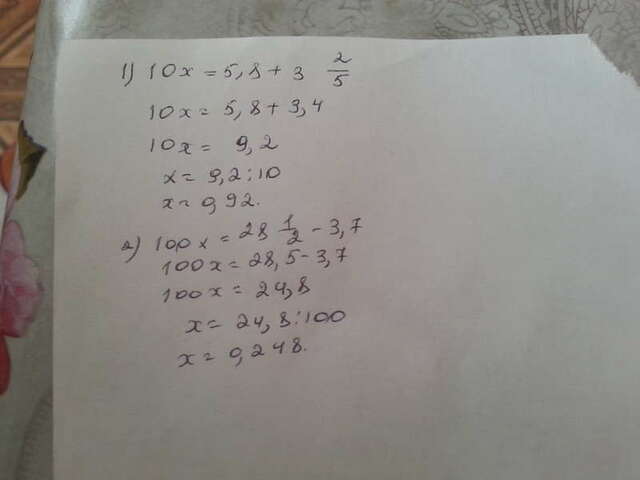 1) 10x = 5,8 + 3 2/5
10x = 5,8 + 3,4
10x = 9,2
x = 9,2 : 10
x = 0,92.
2) 100x = 28 1/2 - 3,7
100x = 28,5 - 3,7
100x = 24,8
x = 24,8 : 100
x = 0,248.